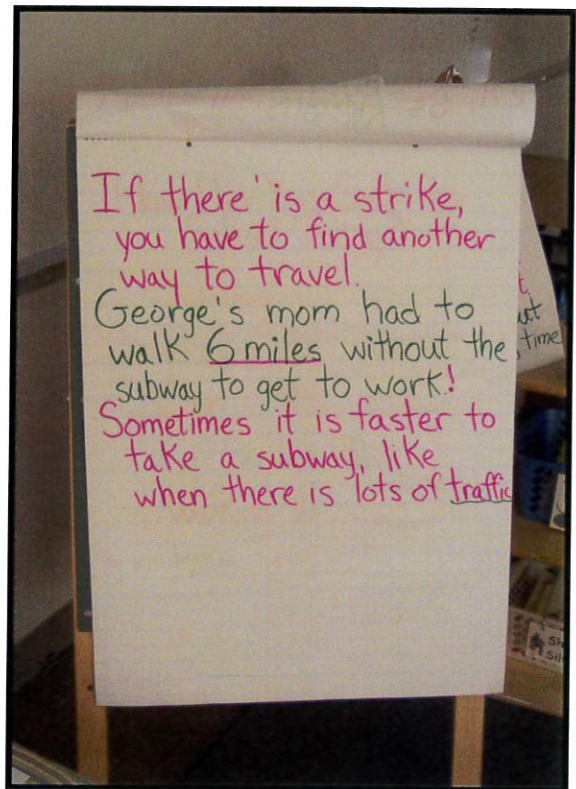 If there' is a strike,
you have to find another
way to travel.
George's mom had to
walk 6 miles without the
subway to get to work!
Sometimes it is faster to
take a subway, like
when there is lots of traffic
time